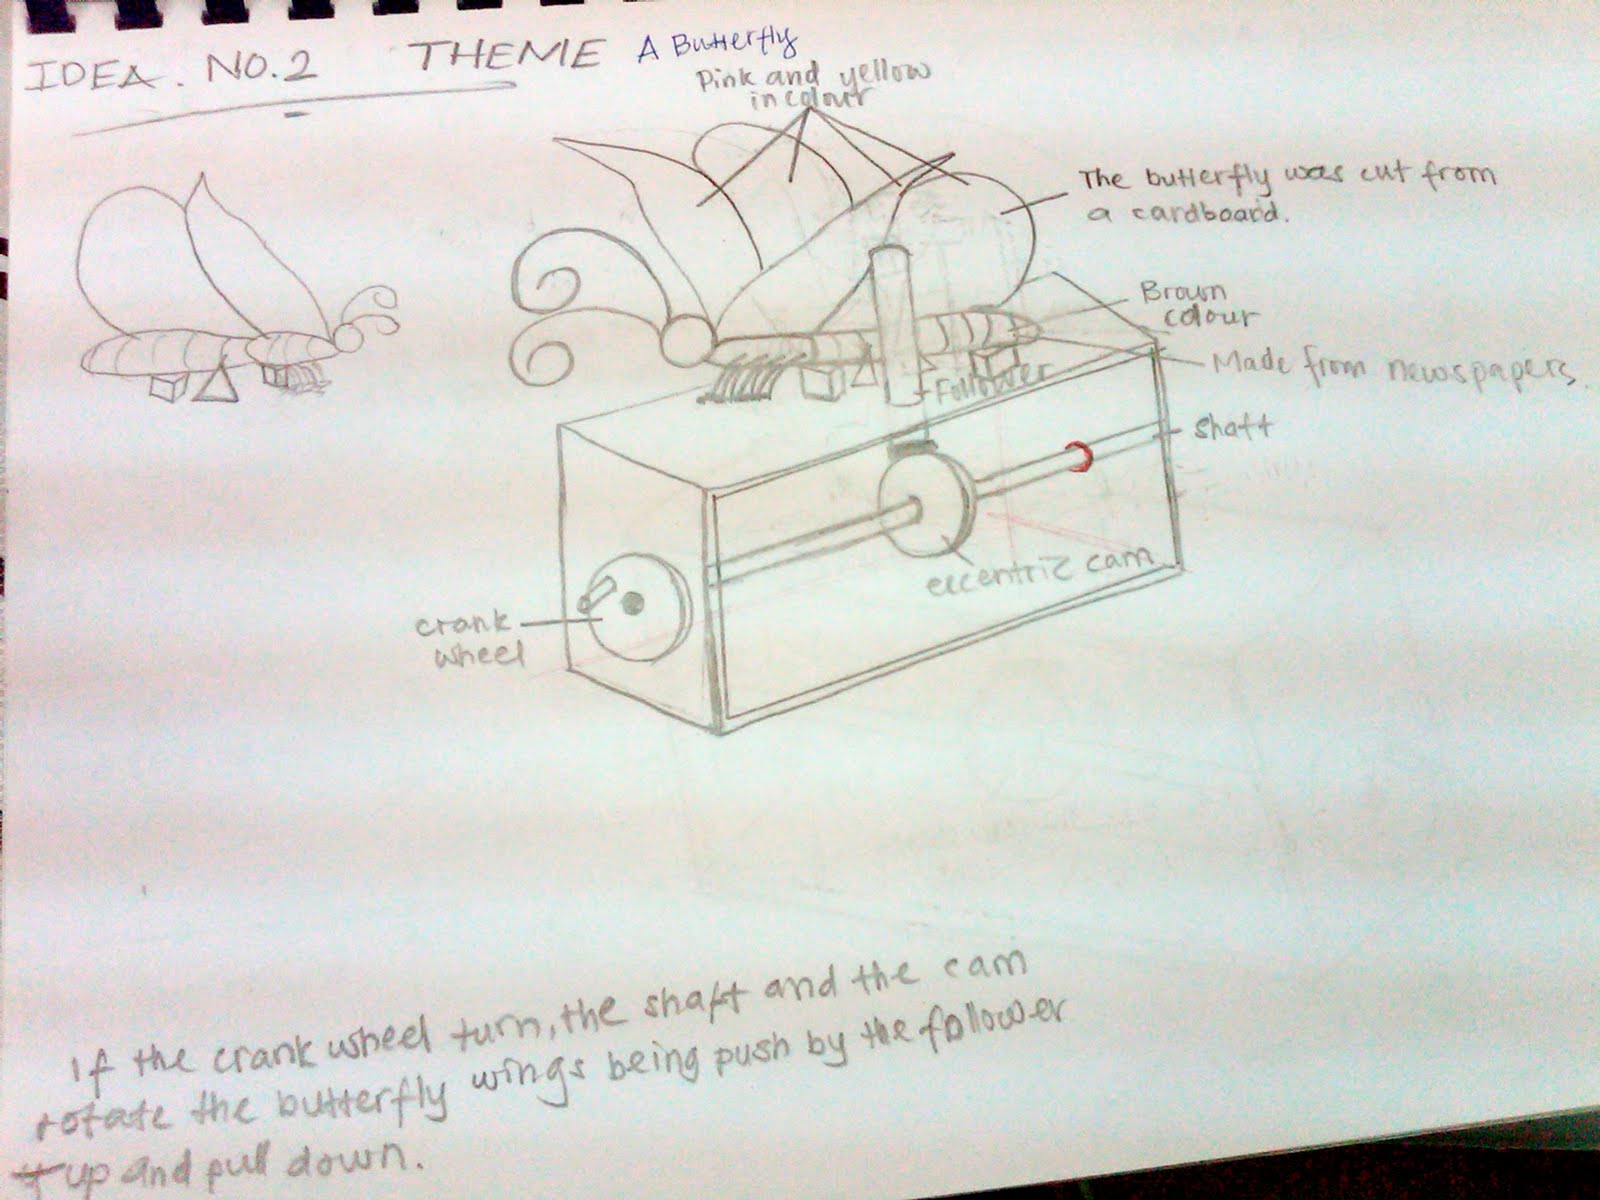 IDEA. NO.2 THEME A Butterfly
Pink and yellow
in colour
The butterfly was cut from
a cardboard.
Brown
colour
Made from newspapers.
Follower
shaft
eccentric cam
crank
wheel
If the crank wheel turn, the shaft and the cam
rotate the butterfly wings being push by the follower
up and pull down.